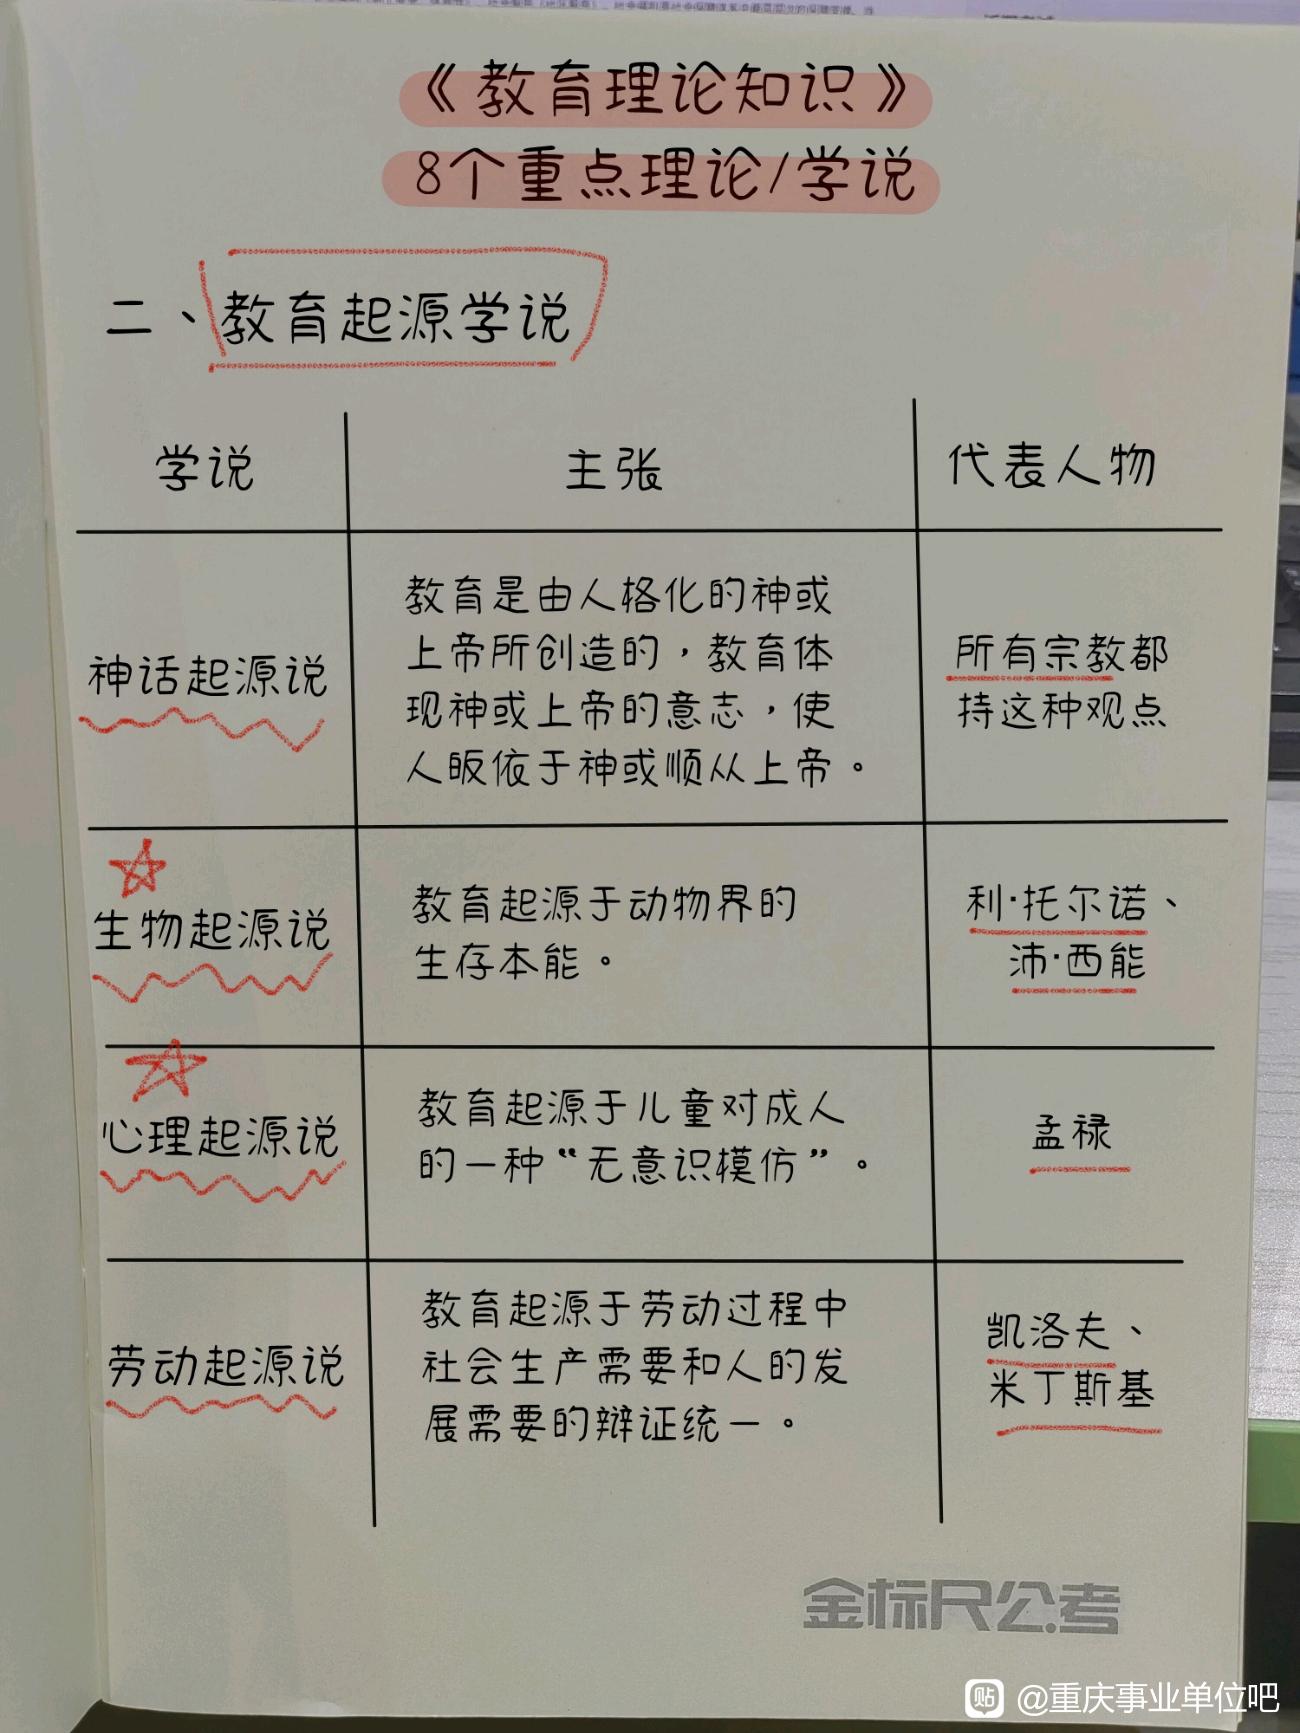 《教育理论知识》
8个重点理论/学说
二、教育起源学说
学说 主张 代表人物
神话起源说
教育是由人格化的神或
上帝所创造的，教育体
现神或上帝的意志，使
人皈依于神或顺从上帝。
所有宗教都
持这种观点
生物起源说
教育起源于动物界的
生存本能。
利·托尔诺、
沛·西能
心理起源说
教育起源于儿童对成人
的一种“无意识模仿”。
孟禄
劳动起源说
教育起源于劳动过程中
社会生产需要和人的发
展需要的辩证统一。
凯洛夫、
米丁斯基
金标尺公考
贴 @重庆事业单位吧